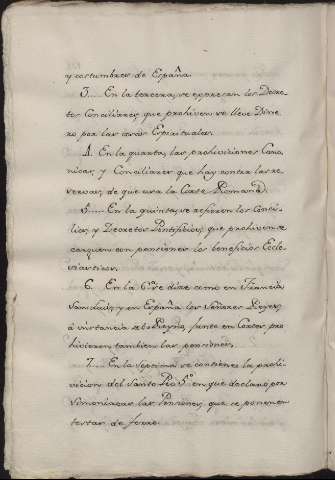 y costumbres de España.
3.... En la tercera, se expresan los Decre-
tos Conciliares, que prohiven se lleve Dine-
ro por las cosas Espirituales.
4. En la quarta, las prohiviciones Cano-
nicas, y Conciliares que hay contra las re-
servas, de que usa la Corte Romana.
5.... En la quinta, se refieren los Consi-
lios, y Decretos Pontificios, que prohiven se
carguen con pensiones los beneficios Ecle-
siasticos.
6. En la 6ª se dize como en Francia
San Luis, y en España los Señores Reyes,
á instancia del Reyno, junto en Cortes, pro
hivieron tambien las pensiones.
7.... En la septima se contiene la prohi-
vicion del Santo Pio 5º en que declaro por
simoniacas las Pensiones, que se ponen en
testas de ferro.